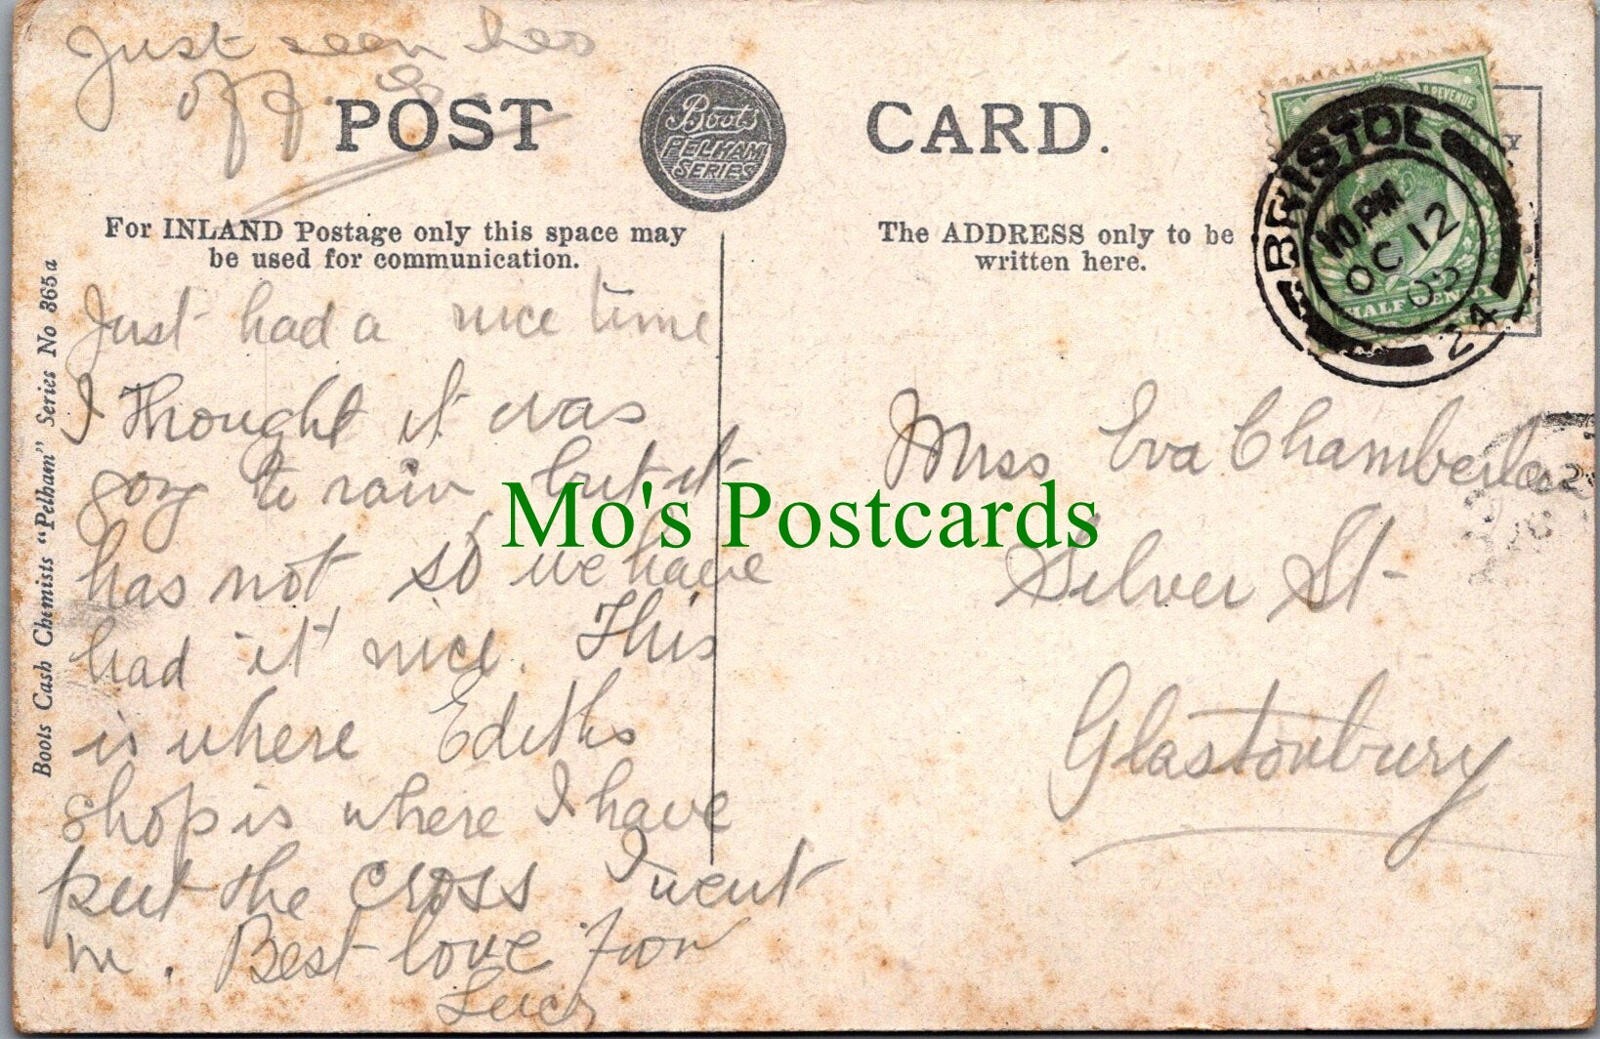 Just seen her
off.
POST CARD.
Boots
PELHAM
SERIES
For INLAND Postage only this space may
be used for communication.
The ADDRESS only to be
written here.
REVENUE
HALF PENNY
BRISTOL
10 PM
OC 12
24
Boots Cash Chemists "Pelham" Series No 365a
Just had a nice time
I thought it was
goy to rain but it
has not so we have
had it nice. This
is where Ediths
shop is where I have
put the cross I went
in. Best love from
Miss Eva Chamberlain
Silver St
Glastonbury
Mo's Postcards